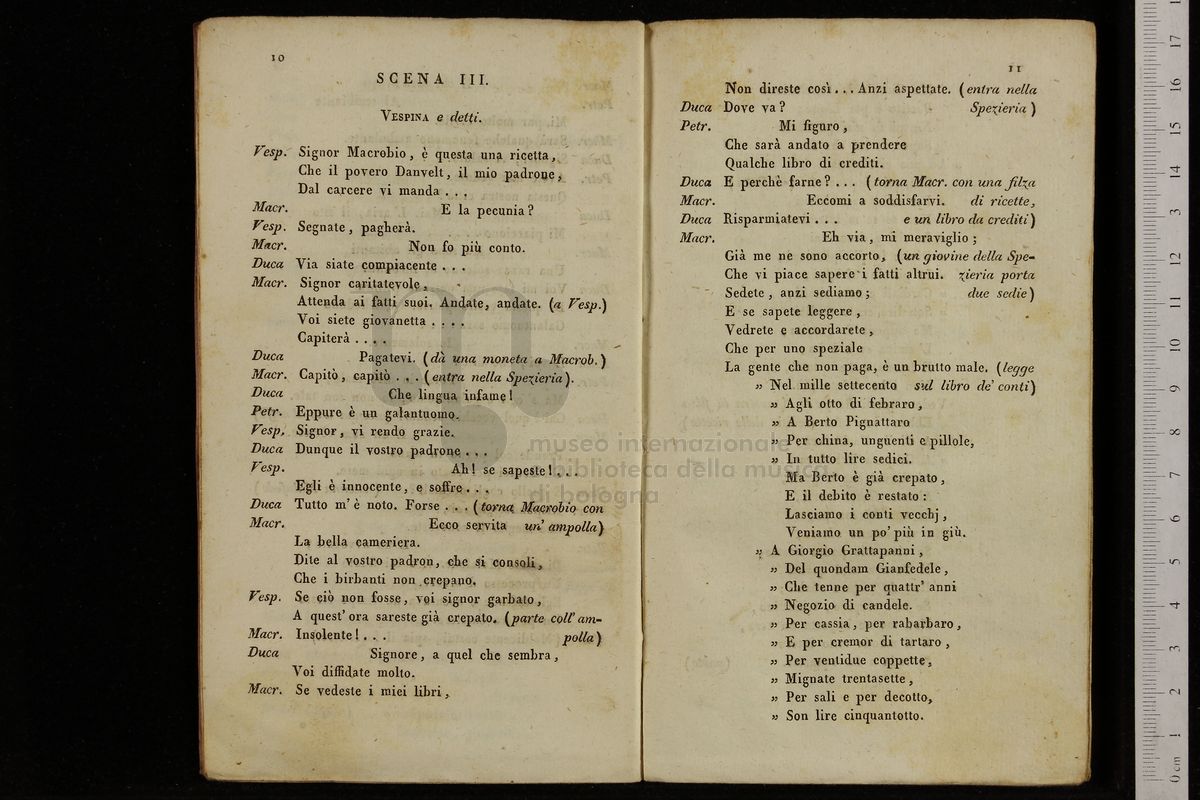 10
SCENA III.
VESPINA e detti.
Vesp. Signor Macrobio, è questa una ricetta,
Che il povero Danvelt, il mio padrone,
Dal carcere vi manda . . .
Macr. E la pecunia?
Vesp. Segnate, pagherà.
Macr. Non fo più conto.
Duca Via siate compiacente . . .
Macr. Signor caritatevole,
Attenda ai fatti suoi. Andate, andate. (a Vesp.)
Voi siete giovanetta . . . .
Capiterà . . . .
Duca Pagatevi. (dà una moneta a Macrob.)
Macr. Capitò, capitò . . . (entra nella Spezieria).
Duca Che lingua infame!
Petr. Eppure è un galantuomo.
Vesp. Signor, vi rendo grazie.
Duca Dunque il vostro padrone . . .
Vesp. Ah! se sapeste! . . .
Egli è innocente, e soffre . . .
Duca Tutto m'è noto. Forse . . . (torna Macrobio con
Macr. Ecco servita un' ampolla)
La bella cameriera.
Dite al vostro padron, che si consoli,
Che i birbanti non crepano.
Vesp. Se ciò non fosse, voi signor garbato,
A quest' ora sareste già crepato. (parte coll' am-
Macr. Insolente! . . . polla)
Duca Signore, a quel che sembra,
Voi diffidate molto.
Macr. Se vedeste i miei libri,
11
Non direste così . . . Anzi aspettate. (entra nella
Duca Dove va? Spezieria)
Petr. Mi figuro,
Che sarà andato a prendere
Qualche libro di crediti.
Duca E perchè farne? . . . (torna Macr. con una filza
Macr. Eccomi a soddisfarvi. di ricette,
Duca Risparmiatevi . . . e un libro da crediti)
Macr. Eh via, mi meraviglio;
Già me ne sono accorto, (un giovine della Spe-
Che vi piace sapere i fatti altrui. zieria porta
Sedete, anzi sediamo; due sedie)
E se sapete leggere,
Vedrete e accordarete,
Che per uno speziale
La gente che non paga, è un brutto male. (legge
„ Nel mille settecento sul libro de' conti)
„ Agli otto di febraro,
„ A Berto Pignattaro
„ Per china, unguenti e pillole,
„ In tutto lire sedici.
Ma Berto è già crepato,
E il debito è restato:
Lasciamo i conti vecchj,
Veniamo un po' più in giù.
„ A Giorgio Grattapanni,
„ Del quondam Gianfedele,
„ Che tenne per quattr' anni
„ Negozio di candele.
„ Per cassia, per rabarbaro,
„ E per cremor di tartaro,
„ Per ventidue coppette,
„ Mignate trentasette,
„ Per sali e per decotto,
„ Son lire cinquantotto.
museo internazionale
e biblioteca della musica
di bologna
0 cm 1 2 3 4 5 6 7 8 9 10 11 12 13 14 15 16 17